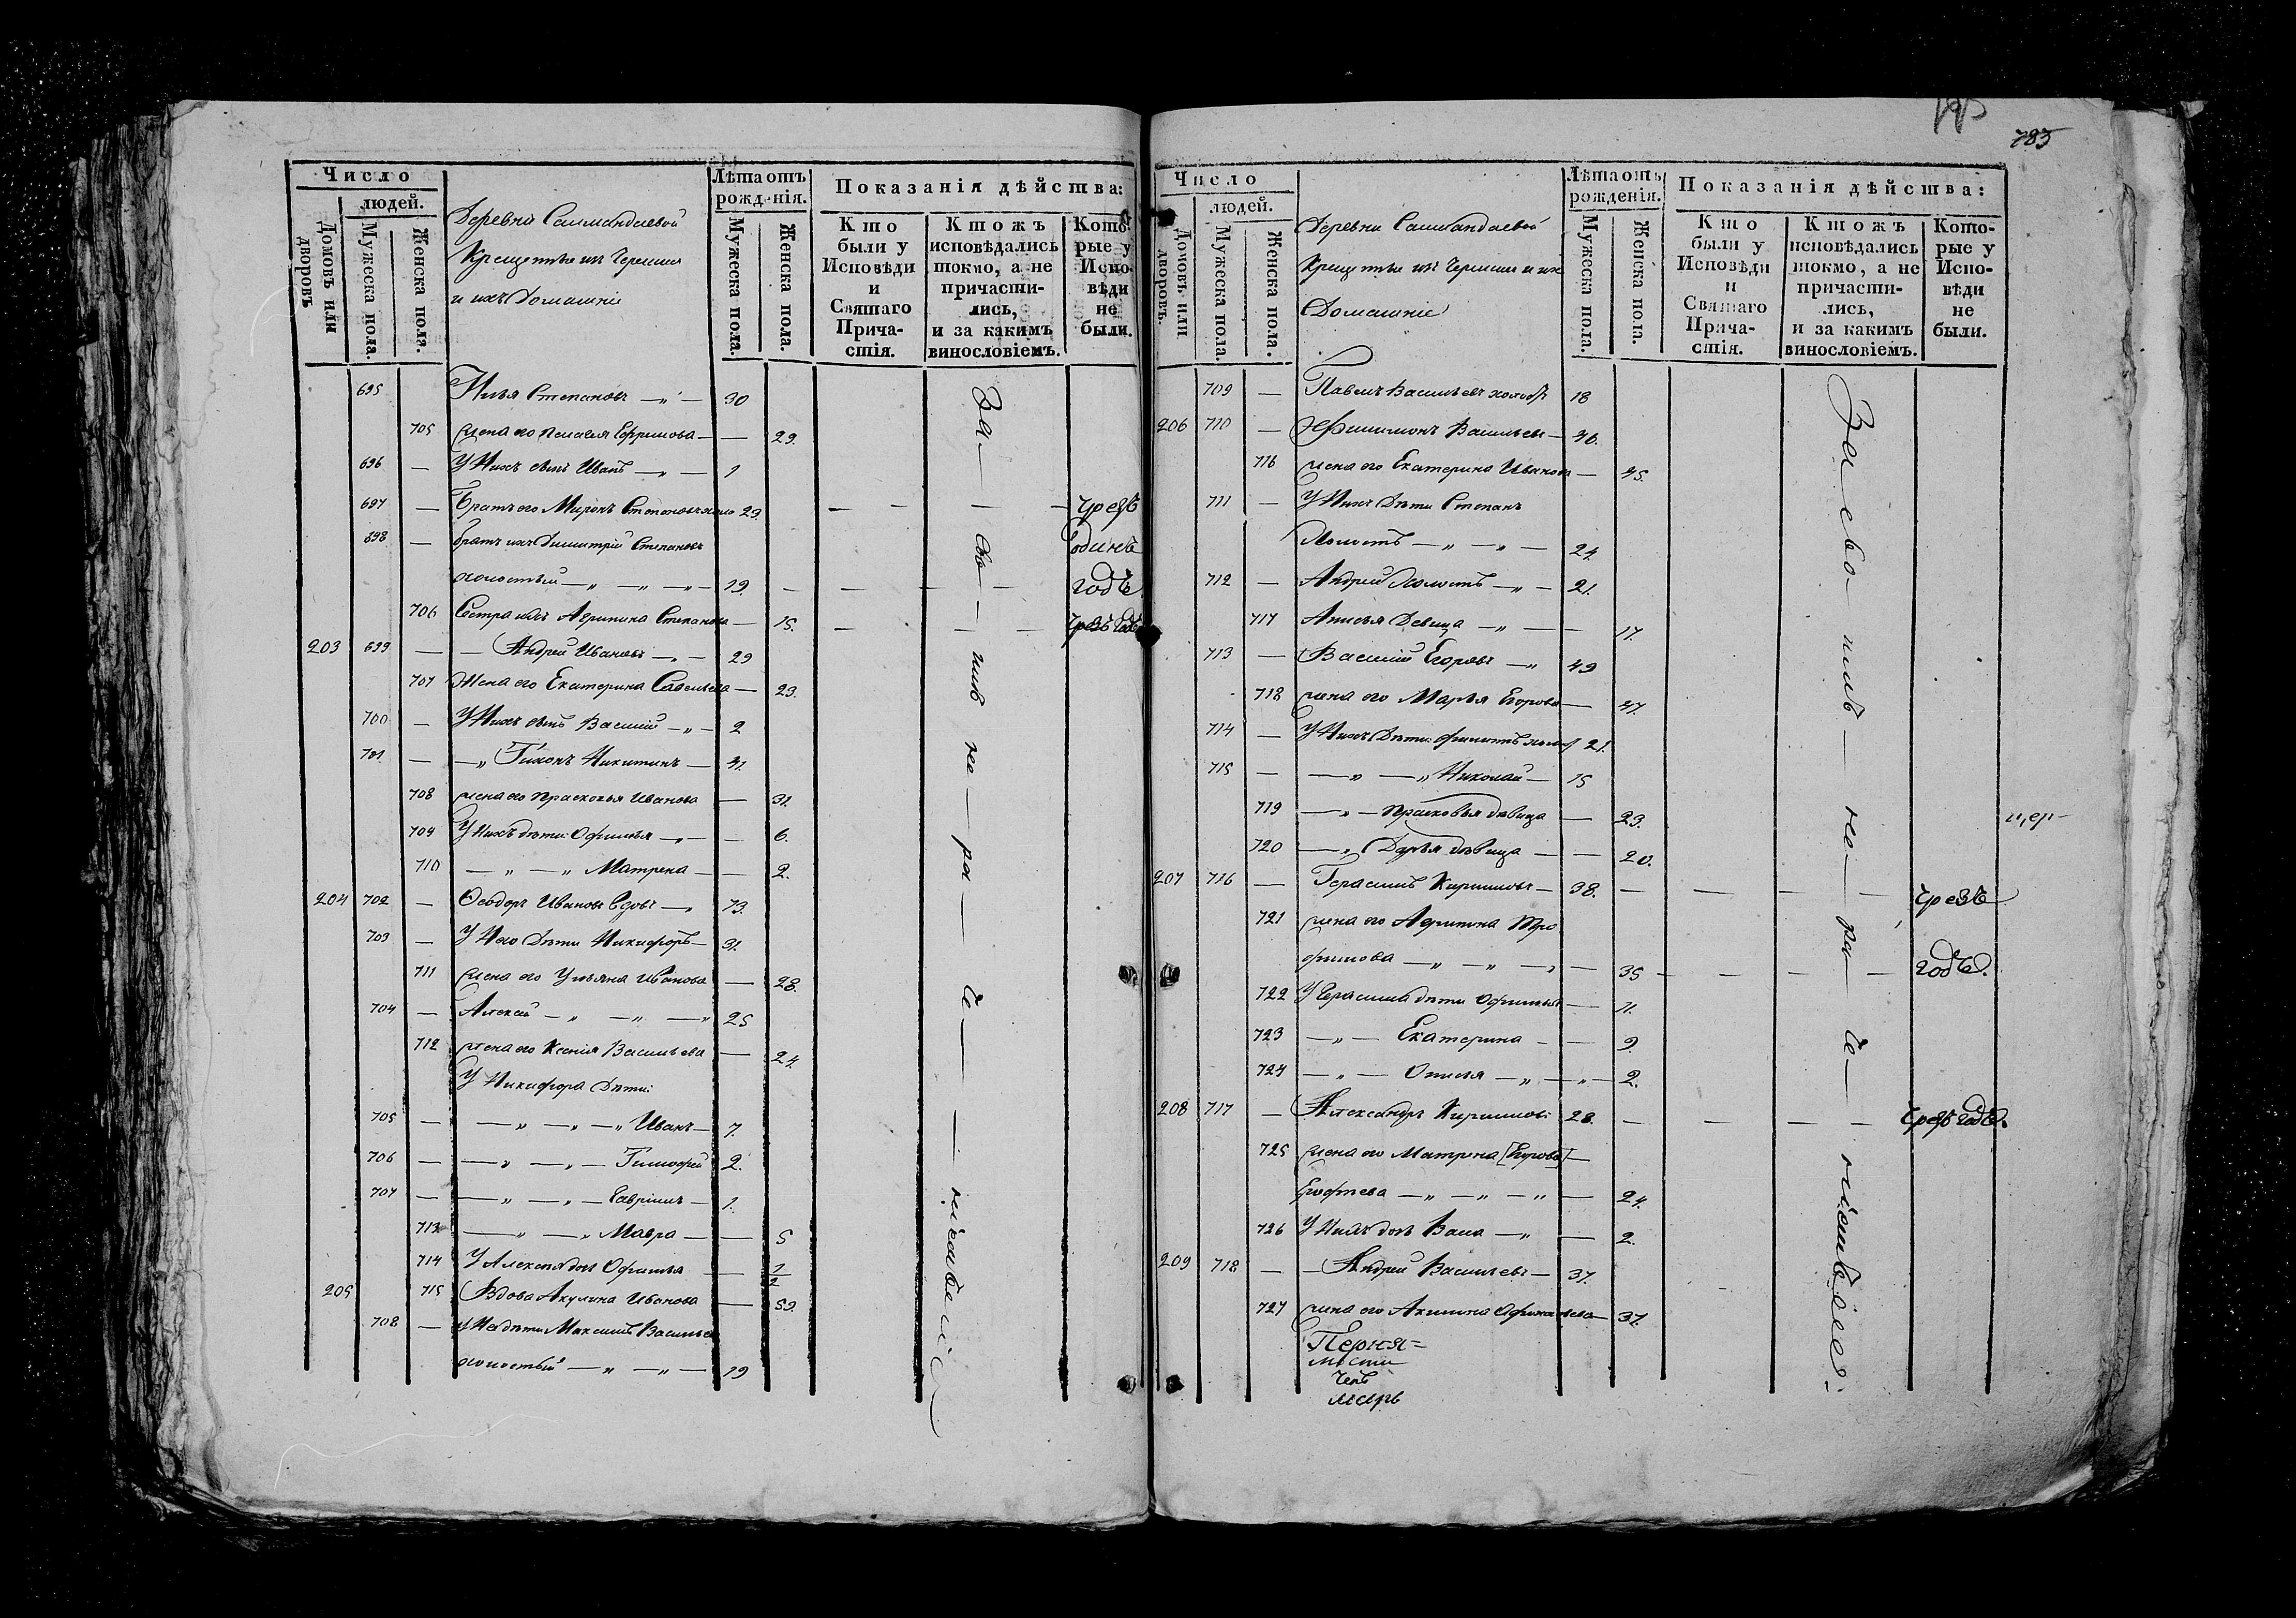 783
Число
людей.
Домовъ или дворовъ
Мужеска пола.
Женска пола.
Деревни
Крещеные изъ Черемис
и ихъ Домашніе
Лѣта отъ рожденія.
Мужеска пола.
Женска пола.
Показанія дѣйства:
Кто были у Исповѣди и Святаго Причастія.
Ктожъ исповѣдались токмо, а не причастились, и за какимъ винословіемъ.
Которые у Исповѣди не были.
695 Илья Степановъ — „ — 30
705 жена его Пелагея Ефремова — — 29.
696 — У Нихъ сынъ Иванъ — „ — 1
697 — Братъ его Миронъ Степановъ 23. — — — — чрезъ
698 — братъ ихъ Димитрій Степановъ одинъ
холостый — „ — „ — „ — 19. — — — — годъ
706 Сестра ихъ Агрипина Степанова — 15. — — — чрезъ годъ
203 699 — — Андрей Ивановъ — „ — 29
707 Жена его Екатерина Савельева — 23.
700 — У Нихъ сынъ Василій — „ — 2
701 — — „ Тихонъ Никитинъ — 31.
708 жена его Прасковья Иванова — 31.
709 У Нихъ дѣти: Офимья — „ — — 6.
710 — „ — „ Матрена — — 2.
204 702 — Ѳеодоръ Ивановъ вдовъ — „ 73.
703 — У Него Дѣти Никифоръ — 31.
711 жена его Ульяна Иванова — 28.
704 — Алексѣй — „ — „ — „ 25
712 жена его Ксенія Васильева — 24
У Никифора Дѣти:
705 — — „ — „ — „ Иванъ — 7.
706 — — „ — „ — Тимофей 2.
707 — — „ — „ — Гавріилъ — 1.
713 — „ — „ Мавра — — 5
714 У Алексея дочь Офимья — 1/2
205 715 Вдова Акулина Иванова — 59.
708 — у Ней дѣти Максимъ Васильевъ
холостый — „ — „ — 19
За — сво — имъ не — ра — де — — ніемъ
Число
людей.
Домовъ или дворовъ.
Мужеска пола.
Женска пола.
Деревни
Крещеные изъ Черемис и ихъ
Домашніе
Лѣта отъ рожденія.
Мужеска пола.
Женска пола.
Показанія дѣйства:
Кто были у Исповѣди и Святаго Причастія.
Ктожъ исповѣдались токмо, а не причастились, и за какимъ винословіемъ.
Которые у Исповѣди не были.
709 — Павелъ Васильевъ холост 18
206 710 — Филимонъ Васильевъ — 46.
716 жена его Екатерина Иванова — 45.
711 — У Нихъ Дѣти Степанъ
Холостъ — „ — „ — 24
712 — Андрей Холостъ — „ — 21.
717 Анисья Девица — „ — — 17.
713 — Василій Егоровъ — „ 49
718 жена его Марья Егорова — 47.
714 — У Нихъ Дѣти: Филипъ холос 21.
715 — — „ — „ Николай — 15
719 — „ — Прасковья дѣвица — 23.
720 — „ Дарья дѣвица — — 20.
цер-
207 716 — Герасимъ Кириловъ — 38. — — — — чрезъ
721 жена его Агрипина Тро
фимова — „ — „ — „ — 35 — — — — годъ.
722 У Герасима дѣти Офимья — 11.
723 — „ — Екатерина — — 9.
724 — „ — Олимья — „ — „ — 2.
208 717 — Александръ Кириловъ 28. — — — — чрезъ годъ.
725 жена его Матрена [Егорова] —
— „ — „ — „ — 24.
726 У Нихъ дочь Васса — „ — 2.
209 718 — — Андрей Васильевъ — 37.
727 жена его Акилина — 37.
За сво — имъ — не — ра — де — ніемъ